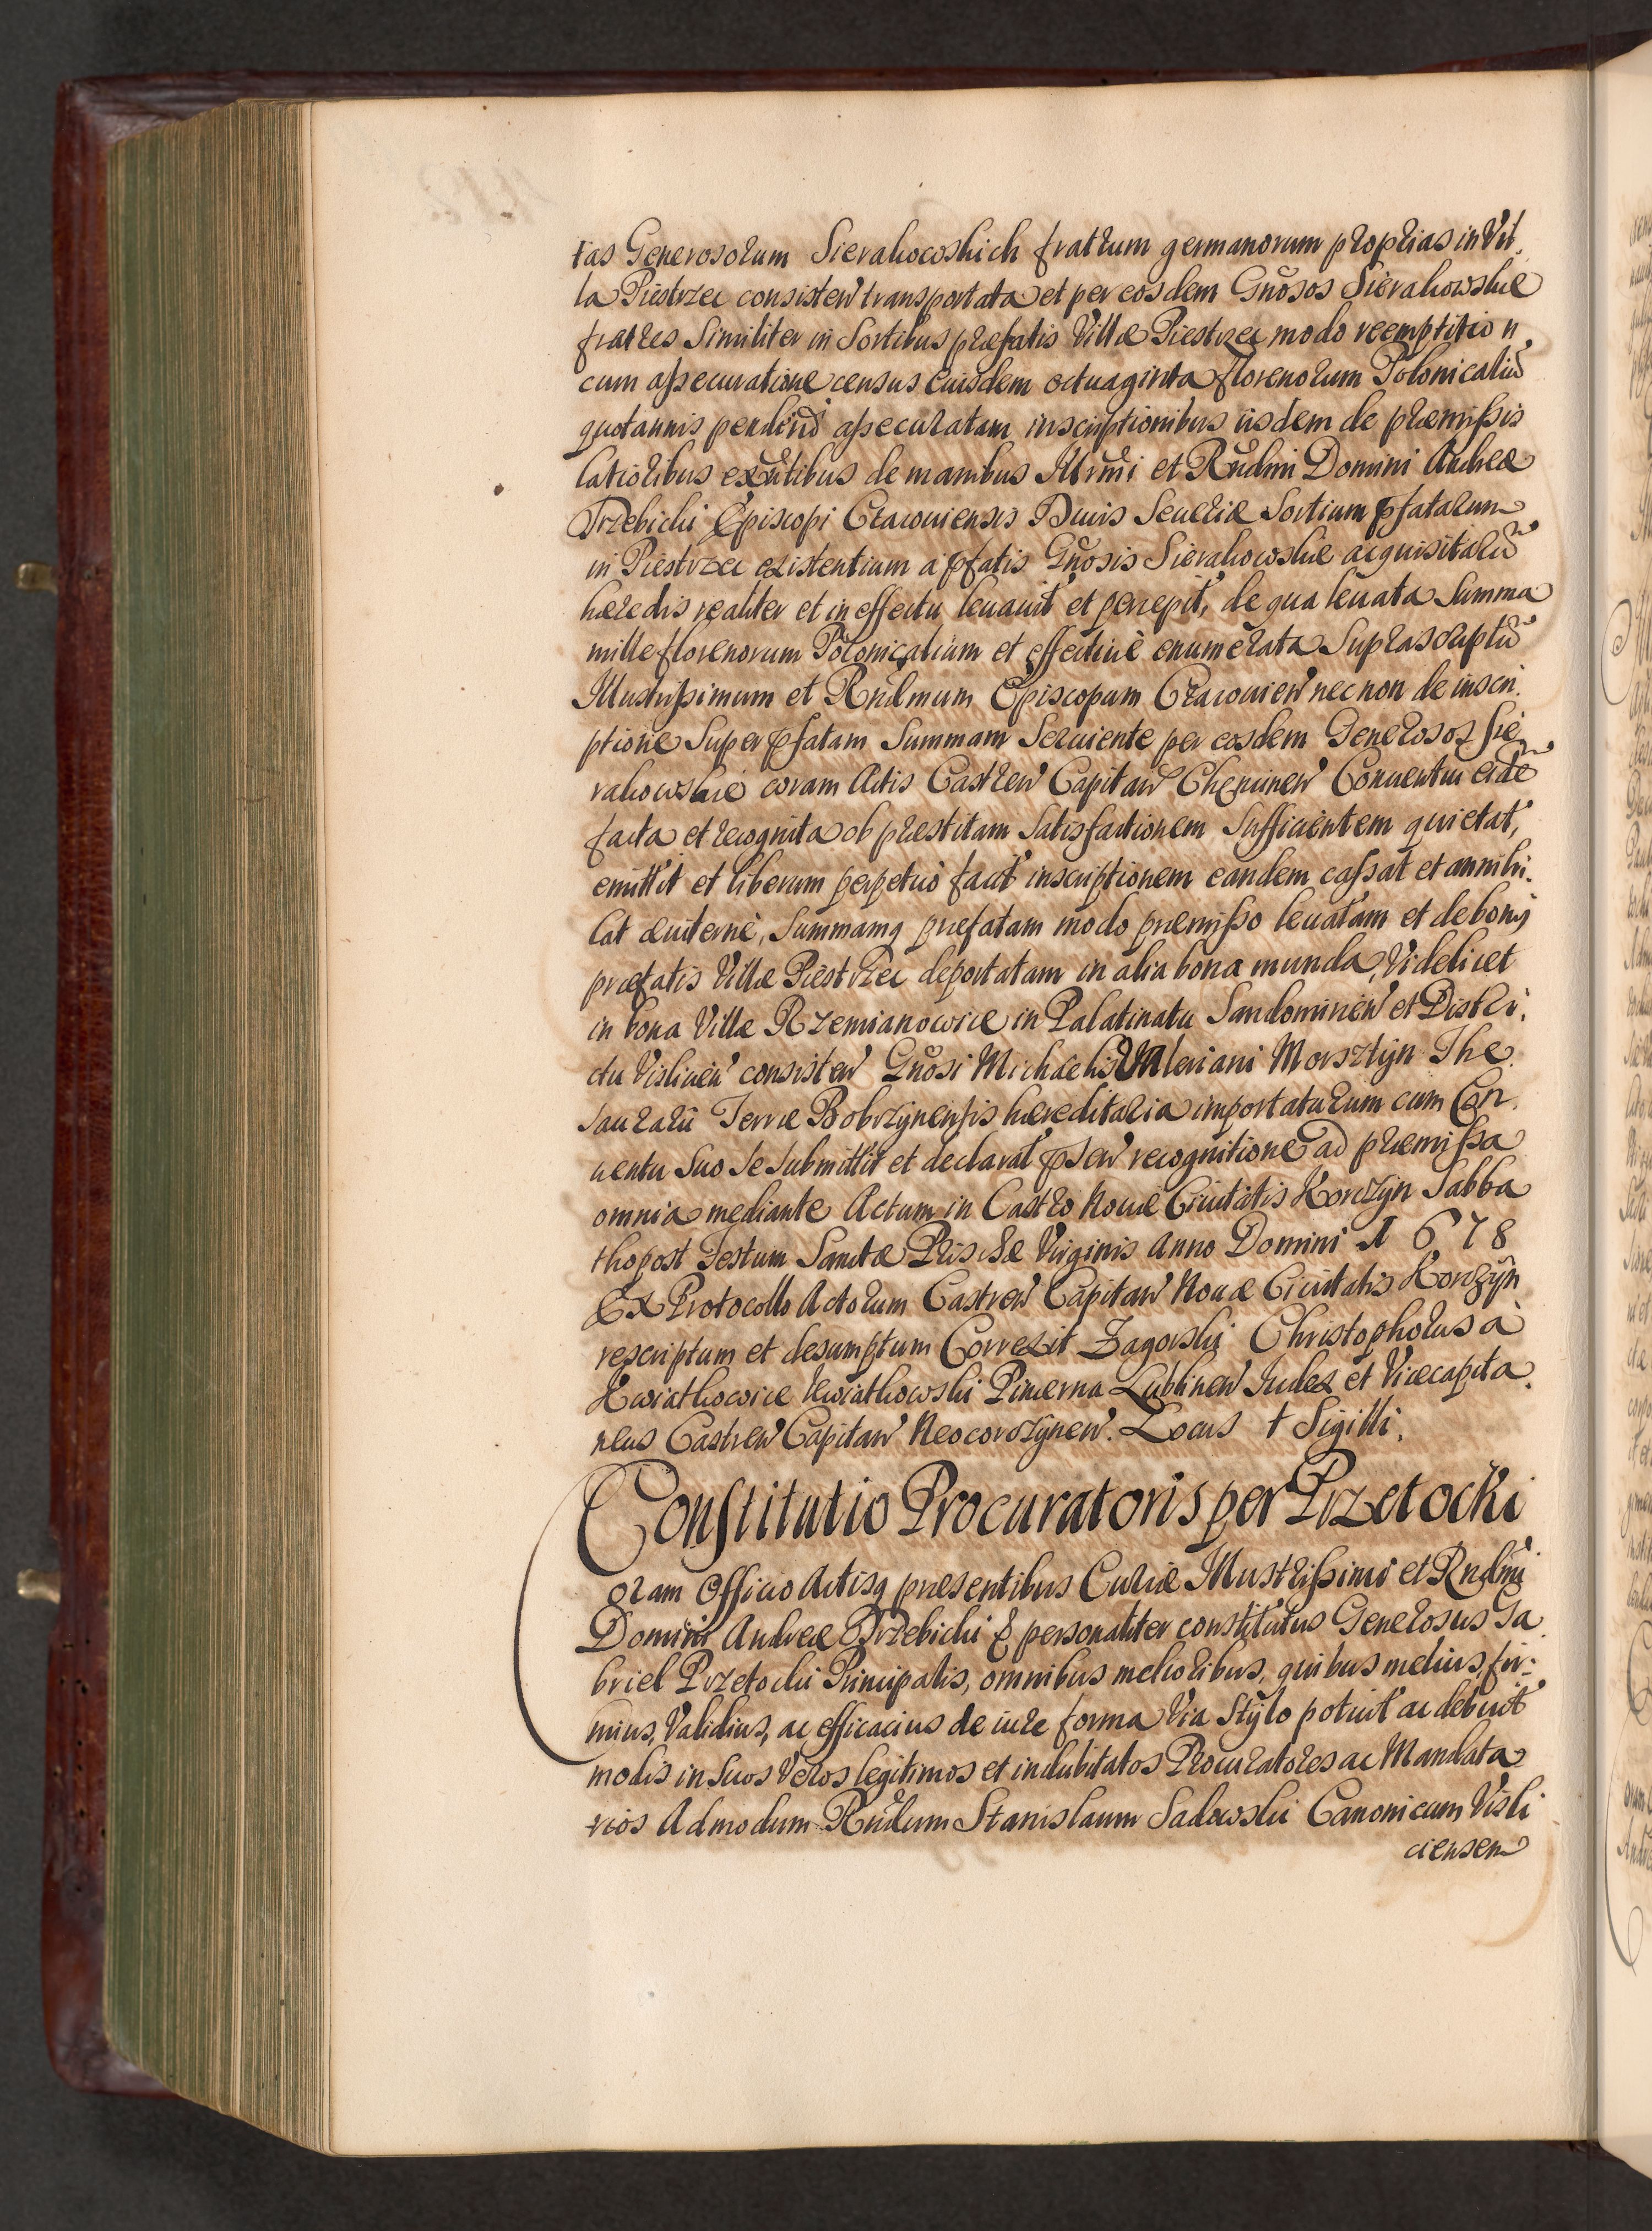 tas Generosorum Sierakowskich fratrum germanorum proprias in Vil,
la Piestrzec consisten transportata et per eosdem Gnosos Sierakowskie
fratres Similiter in Sortibus præfatis Villæ Piestrzec modo reemptitio n,
cum assecuratione census eiusdem octuaginta florenorum Polonicaliu
quotannis pendend assecuratam inscriptionibus iisdem de præmissis
latioribus extantibus de manibus Illrmi et Rndmi Domini Andreæ
Trzebicki Episcopi Cracouiensis Ducis Seueriæ Sortium pfatarum
in Piestrzec existentium a pfatis Gnosis Sierakowskie acquisitaru
hæredis realiter et in effectu leuauit et percepit, de qua leuata Summa
mille florenorum Polonicalium et effectiue enumerata Suprascriptu
Illustrissimum et Rndmum Episcopum Cracouien nec non de inscri.
ptione Super pfatam Summam Seruiente per eosdem Generosos Sie
rakowskie coram Actis Castren Capitan Checinen Conuentui eide
facta et recognita ob præstitam Satisfactionem Sufficientem quietat,
emittit et liberum perpetuò facit inscriptionem eandem cassat et annihi.
lat æuiternè, Summamq præfatam modo præmisso leuatam et de bonis
præfatis Villæ Piestrzec deportatam in alia bona munda, Videlicet
in bona Villæ Rzemianowice in Palatinatu Sandomirien et Distri,
ctu Vislicien consisten Gnosi Michaelis Valeriani Morsztyn The
Saurarii Terræ Bobrzynensis hæreditaria importaturum cum Con,
uentu Suo Se Submittit et declarat pSen recognitione ad præmissa
omnia mediante Actum in Castro Nouæ Ciuitatis Korczyn Sabba
tho post Festum Sanctæ Priscæ Virginis Anno Domini 1678
Ex Protocollo Actorum Castren Capitan Nouæ Ciuitatis Korczyn
rescriptum et desumptum Correxit Zagorski Christophorus à
Kwiatkowice Kwiatkowski Pincerna Lublinen Judex et Vicecapita.
neus Castren Capitan Neocorczynen. Locus † Sigilli.
Constitutio Procuratoris per Przetocki
oram Officio Actisq præsentibus Curiæ Illustrissimi et Rndmi
Domini Andreæ Trzebicki & personaliter constitutus Generosus Ga
briel Przetocki Principalis, omnibus melioribus, quibus melius, fir-
mius, Validius, ac efficacius de iure forma Via Stylo potuit ac debuit
modis in Suos Veros legitimos et indubitatos Procuratores ac Mandata
rios Admodum Rndum Stanislaum Sadowski Canonicum Visli
ciensem